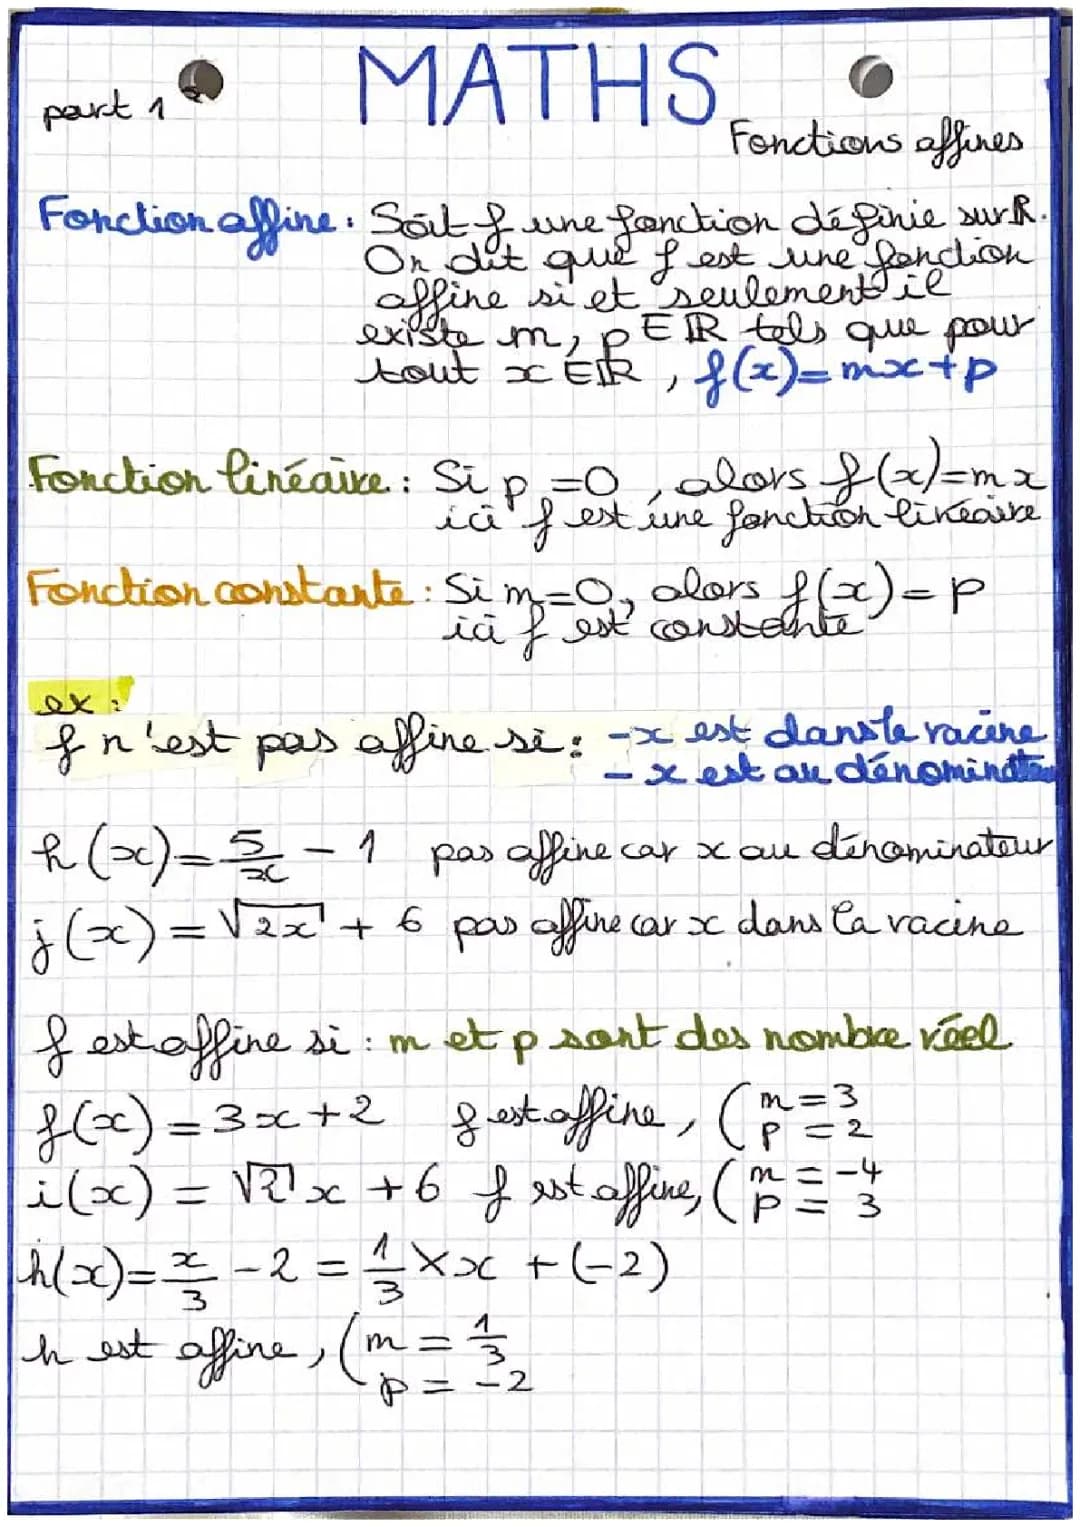 MATHS
part 1
Fonctions affines
Fonction affine : Soit f une fonction définie sur R.
On dit que f est une fonction
affine si et seulement il
existe m, p ∈ ℝ tels que pour
tout x ∈ ℝ, f(x)=mx+p
Fonction linéaire : Si p=0, alors f(x)=mx
ici f est une fonction linéaire
Fonction constante : Si m=0, alors f(x)=p
ici f est constante
ex :
f n'est pas affine si : -x est dans la racine
- x est au dénominateur
h(x)=5/x - 1 pas affine car x au dénominateur
j(x)=√2x + 6 pas affine car x dans la racine
f est affine si : m et p sont des nombre réel
f(x)=3x+2 f est affine, (m=3
p=2
i(x)=√2 x +6 f est affine, (m=-4
p=3
h(x)=x/3 -2 = 1/3 × x + (-2)
h est affine, (m=1/3
p=-2